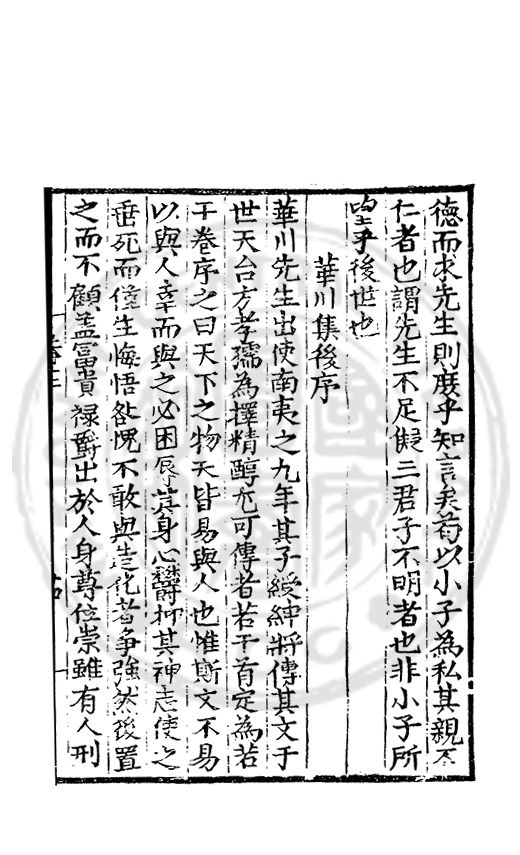 德而求先生則庶乎知言矣苟以小子為私其親不
仁者也謂先生不足儗三君子不明者也非小子所
望乎後世也
華川集後序
華川先生出使南夷之九年其子綬紳將傳其文于
世天台方孝孺為擇精醇尤可傳者若干首定為若
干卷序之曰天下之物天皆易與人也惟斯文不易
以與人幸而與之必困辱其身心鬱抑其神志使之
垂死而僅生悔悟咎愧不敢與造化者爭強然後置
之而不顧盖富貴祿爵出於人身尊位崇雖有人刑